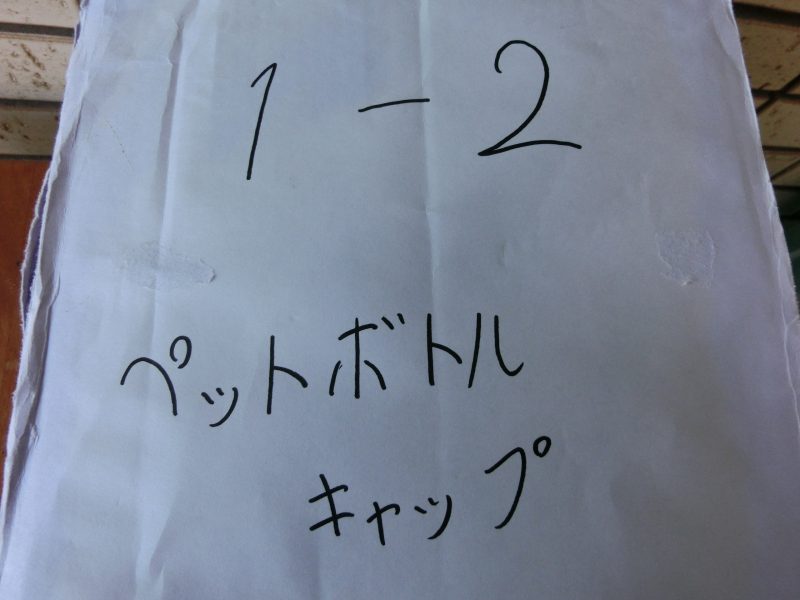 1-2
ペットボトル
キャップ